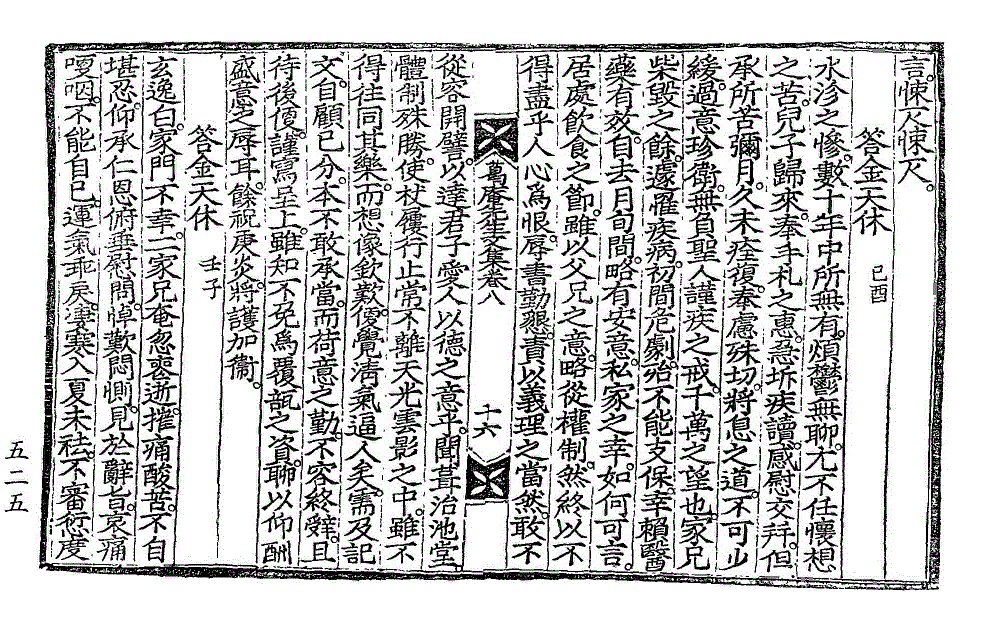 言悚仄悚仄
答金天休 己酉
水沴之慘數十年中所無有煩鬱無聊尤不任懷想
之苦兒子歸來奉手札之惠急坼疾讀感慰交幷但
承所苦彌月久未痊復奉慮殊切將息之道不可少
緩過意珍衛無負聖人謹疾之戒千萬之望也家兄
柴毀之餘遽罹疾病初間危劇殆不能支保幸賴醫
藥有效自去月旬間略有安意私家之幸如何可言
居處飮食之節雖以父兄之意略從權制然終以不
得盡乎人心爲恨辱書勤懇責以義理之當然敢不
萬庵先生文集卷八 十六
從容開譬以達君子愛人以德之意乎聞葺治池堂
體制殊勝使杖屨行止常不離天光雲影之中雖不
得往同其樂而想像欽歎便覺淸氣逼人矣需及記
文自顧已分本不敢承當而荷意之勤不容終辭且
待後便謹寫呈上雖知不免爲覆瓿之資聊以仰酬
盛意之辱耳餘祝庚炎將護加衛
答金天休 壬子
玄逸白家門不幸二家兄奄忽喪逝摧痛酸苦不自
堪忍仰承仁恩俯垂慰問悼歎悶惻見於辭旨哀痛
哽咽不能自已運氣乖戾淒寒入夏未祛不審德度
五二五